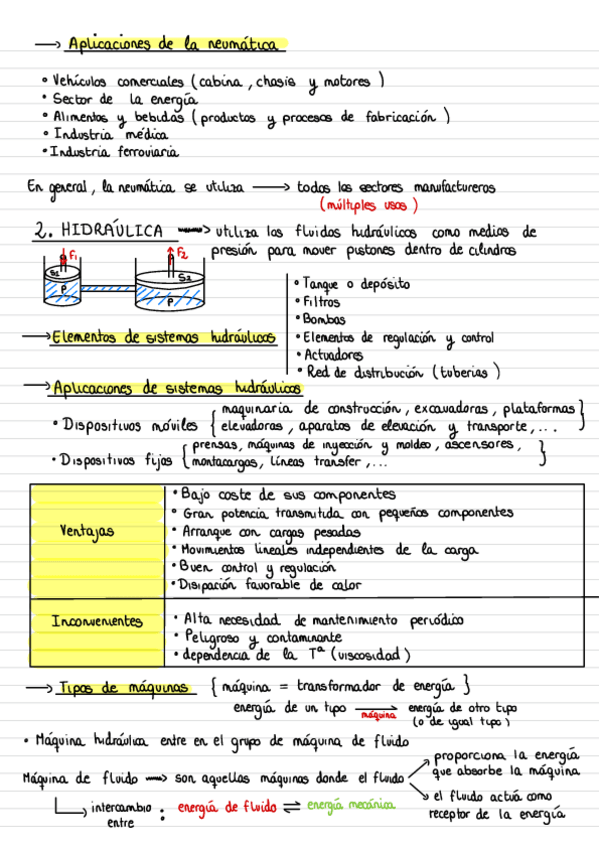 → Aplicaciones de la neumática
• Vehículos comerciales (cabina, chasis y motores)
• Sector de la energía
• Alimentos y bebidas (productos y procesos de fabricación)
• Industria médica
• Industria ferroviaria
En general, la neumática se utiliza → todos los sectores manufactureros
(múltiples usos)
2. HIDRAÚLICA → utiliza los fluidos hidráulicos como medios de
presión para mover pistones dentro de cilindros
F1 F2
S1 S2
P P
• Tanque o depósito
• Filtros
• Bombas
→ Elementos de sistemas hidráulicos
• Elementos de regulación y control
• Actuadores
• Red de distribución (tuberias)
→ Aplicaciones de sistemas hidráulicos
• Dispositivos móviles { maquinaria de construcción, excavadoras, plataformas
elevadoras, aparatos de elevación y transporte,... }
• Dispositivos fijos { prensas, máquinas de inyección y moldeo, ascensores,
montacargas, líneas transfer,... }
Ventajas
• Bajo coste de sus componentes
• Gran potencia transmitida con pequeños componentes
• Arranque con cargas pesadas
• Movimientos lineales independientes de la carga
• Buen control y regulación
• Disipación favorable de calor
Inconvenientes
• Alta necesidad de mantenimiento periódico
• Peligroso y contaminante
• dependencia de la Tª (viscosidad)
→ Tipos de máquinas { máquina = transformador de energía }
energía de un tipo → máquina energía de otro tipo
(o de igual tipo)
• Máquina hidráulica entre en el grupo de máquina de fluido
Máquina de fluido → son aquellas máquinas donde el fluido
proporciona la energía
que absorbe la máquina
el fluido actuá como
receptor de la energía
intercambio entre : energía de fluido ⇌ energía mecánica